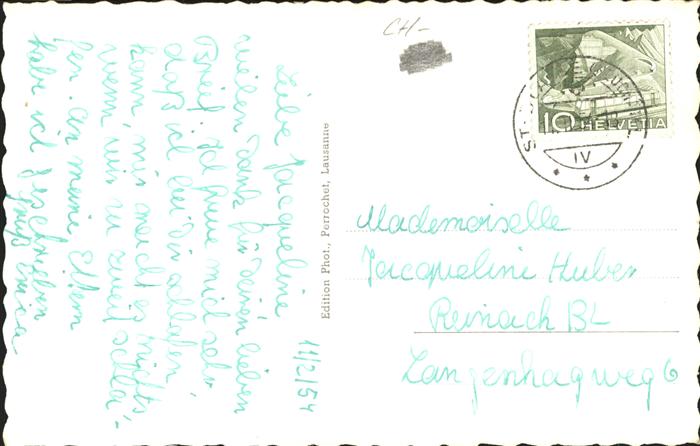 CH-
11/2/54
Liebe Jacqueline,
vielen Dank für Deinen lieben
Brief. Ich freue mich sehr,
daß ich bei Dir schlafen
kann, mir macht es nichts,
wenn wir zu zweit schla-
fen. An meine Eltern
habe ich geschrieben
Gruß Erica
Edition Phot., Perrochet, Lausanne
10 HELVETIA
ST.
IV
Mademoiselle
Jacqueline Huber
Reinach BL
Langenhagweg 6